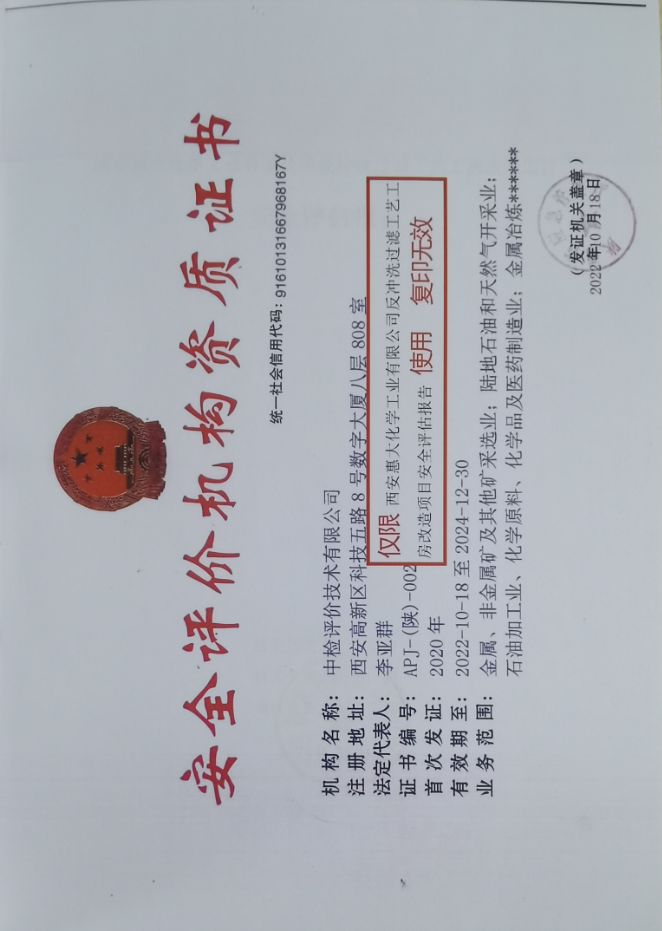 安全评价机构资质证书
统一社会信用代码：91610131667968167Y
机构名称：中检评价技术有限公司
注册地址：西安高新区科技五路8号数字大厦八层808室
法定代表人：李亚群
证书编号：APJ-(陕)-002
首次发证：2020年
有效期至：2022-10-18至2024-12-30
业务范围：金属、非金属矿及其他矿采选业；陆地石油和天然气开采业；
石油加工业、化学原料、化学品及医药制造业；金属冶炼******
仅限 西安惠大化学工业有限公司反冲洗过滤工艺工
房改造项目安全评估报告 使用 复印无效
（发证机关盖章）
2022年10月18日